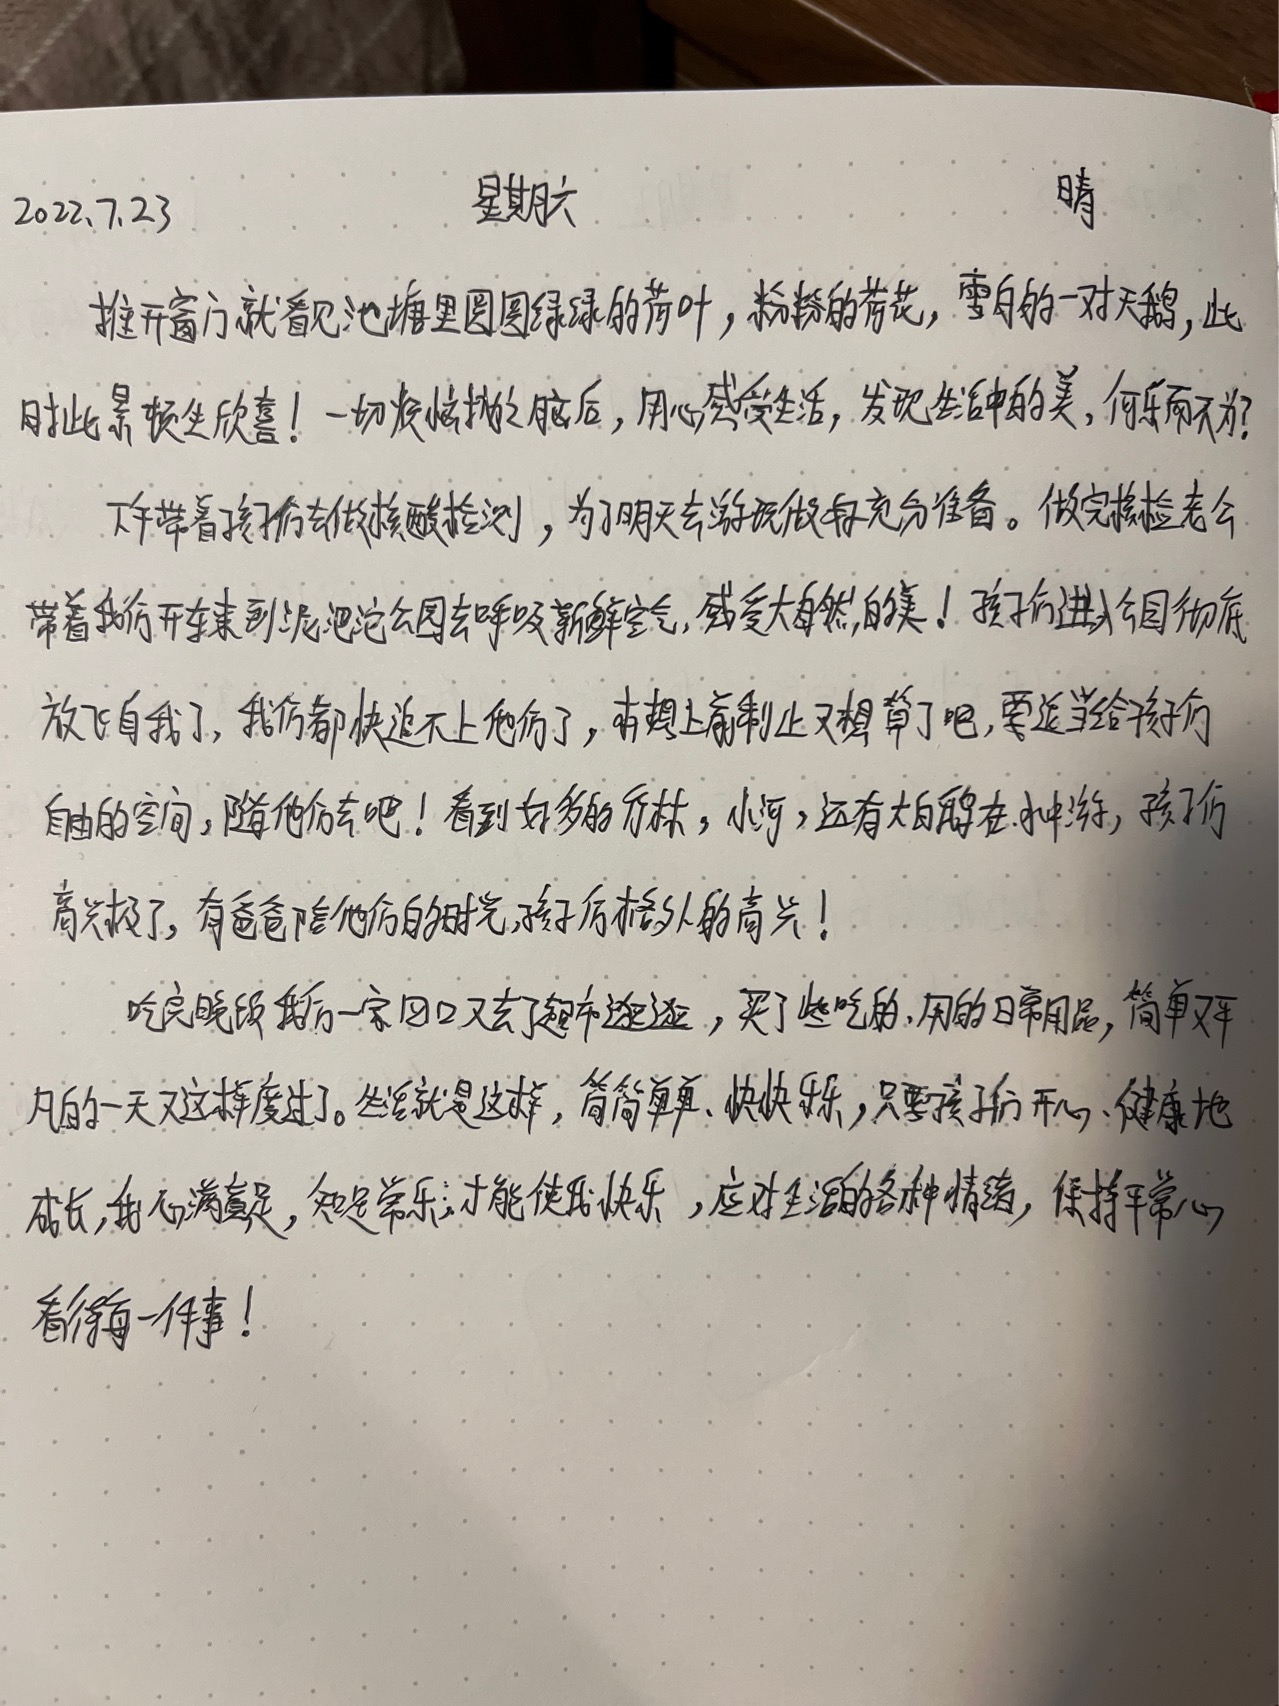 2022.7.23 星期六 晴
推开窗门就看见池塘里圆圆绿绿的荷叶，粉粉的荷花，雪白的一对天鹅，此
时此景顿生欣喜！一切烦恼抛之脑后，用心感受生活，发现生活中的美，何乐而不为？
下午带着孩子们去做核酸检测，为了明天去游玩做好充分准备。做完核检老公
带着我们开车来到泥池沱公园去呼吸新鲜空气，感受大自然的美！孩子们进入公园彻底
放飞自我了，我们都快追不上他们了，有想上前制止又想算了吧，要适当给孩子们
自由的空间，随他们去吧！看到好多的竹林，小河，还有大白鹅在水中游，孩子们
高兴极了，有爸爸陪他们的时光，孩子们格外的高兴！
吃完晚饭我们一家四口又去了超市逛逛，买了些吃的、用的日常用品，简单又平
凡的一天又这样度过了。生活就是这样，简简单单、快快乐乐，只要孩子们开心、健康地
成长，我心满意足，知足常乐；才能使我快乐，应对生活的各种情绪，保持平常心
看待每一件事！